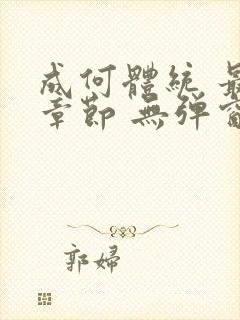 成何體統 最
章節 無彈窗
郭婦